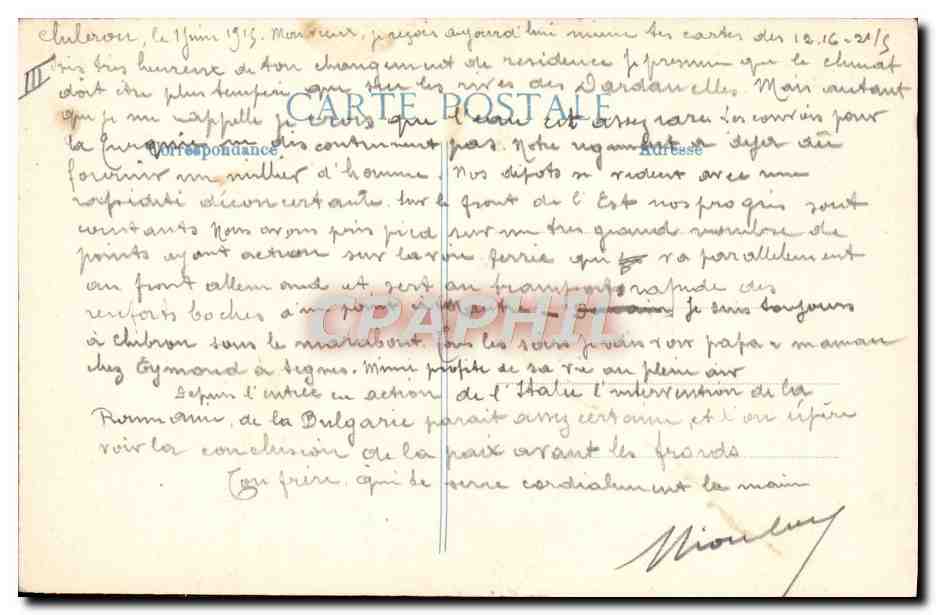 Chibron, le 1 Juin 1915. Monsieur, je reçois aujourd'hui même tes cartes des 12.16-21/5
III
suis tres heureux de ton changement de residence je presume que le climat
doit être plus temperé que sur les rives des Dardanelles. Mais autant
CARTE POSTALE
que je me rappelle je crois que l'eau est assez rare. Les convois pour
la discontinuent pas. Notre regiment a dejà dû
Correspondance
Adresse
fournir un millier d'homme. Nos dépots se vident avec une
rapidité déconcertante. Sur le front de l'Est nos progrès sont
constants Nous avons pris pied sur un tres grand nombre de
points ayant action sur la voie ferrée qui va parallelement
au front allemand et sert au transport rapide des
renforts boches d'un point à l'autre. Je suis toujours
à Chibron sous le marabout, tous les soirs je vais voir papa & maman
CPAPHIL
chez Eymond à Signes. Mimi profite de sa vie au plein air
Depuis l'entrée en action de l'Italie l'intervention de la
Roumanie, de la Bulgarie parait assez certaine et l'on espère
voir la conclusion de la paix avant les froids
Ton frère qui te serre cordialement la main